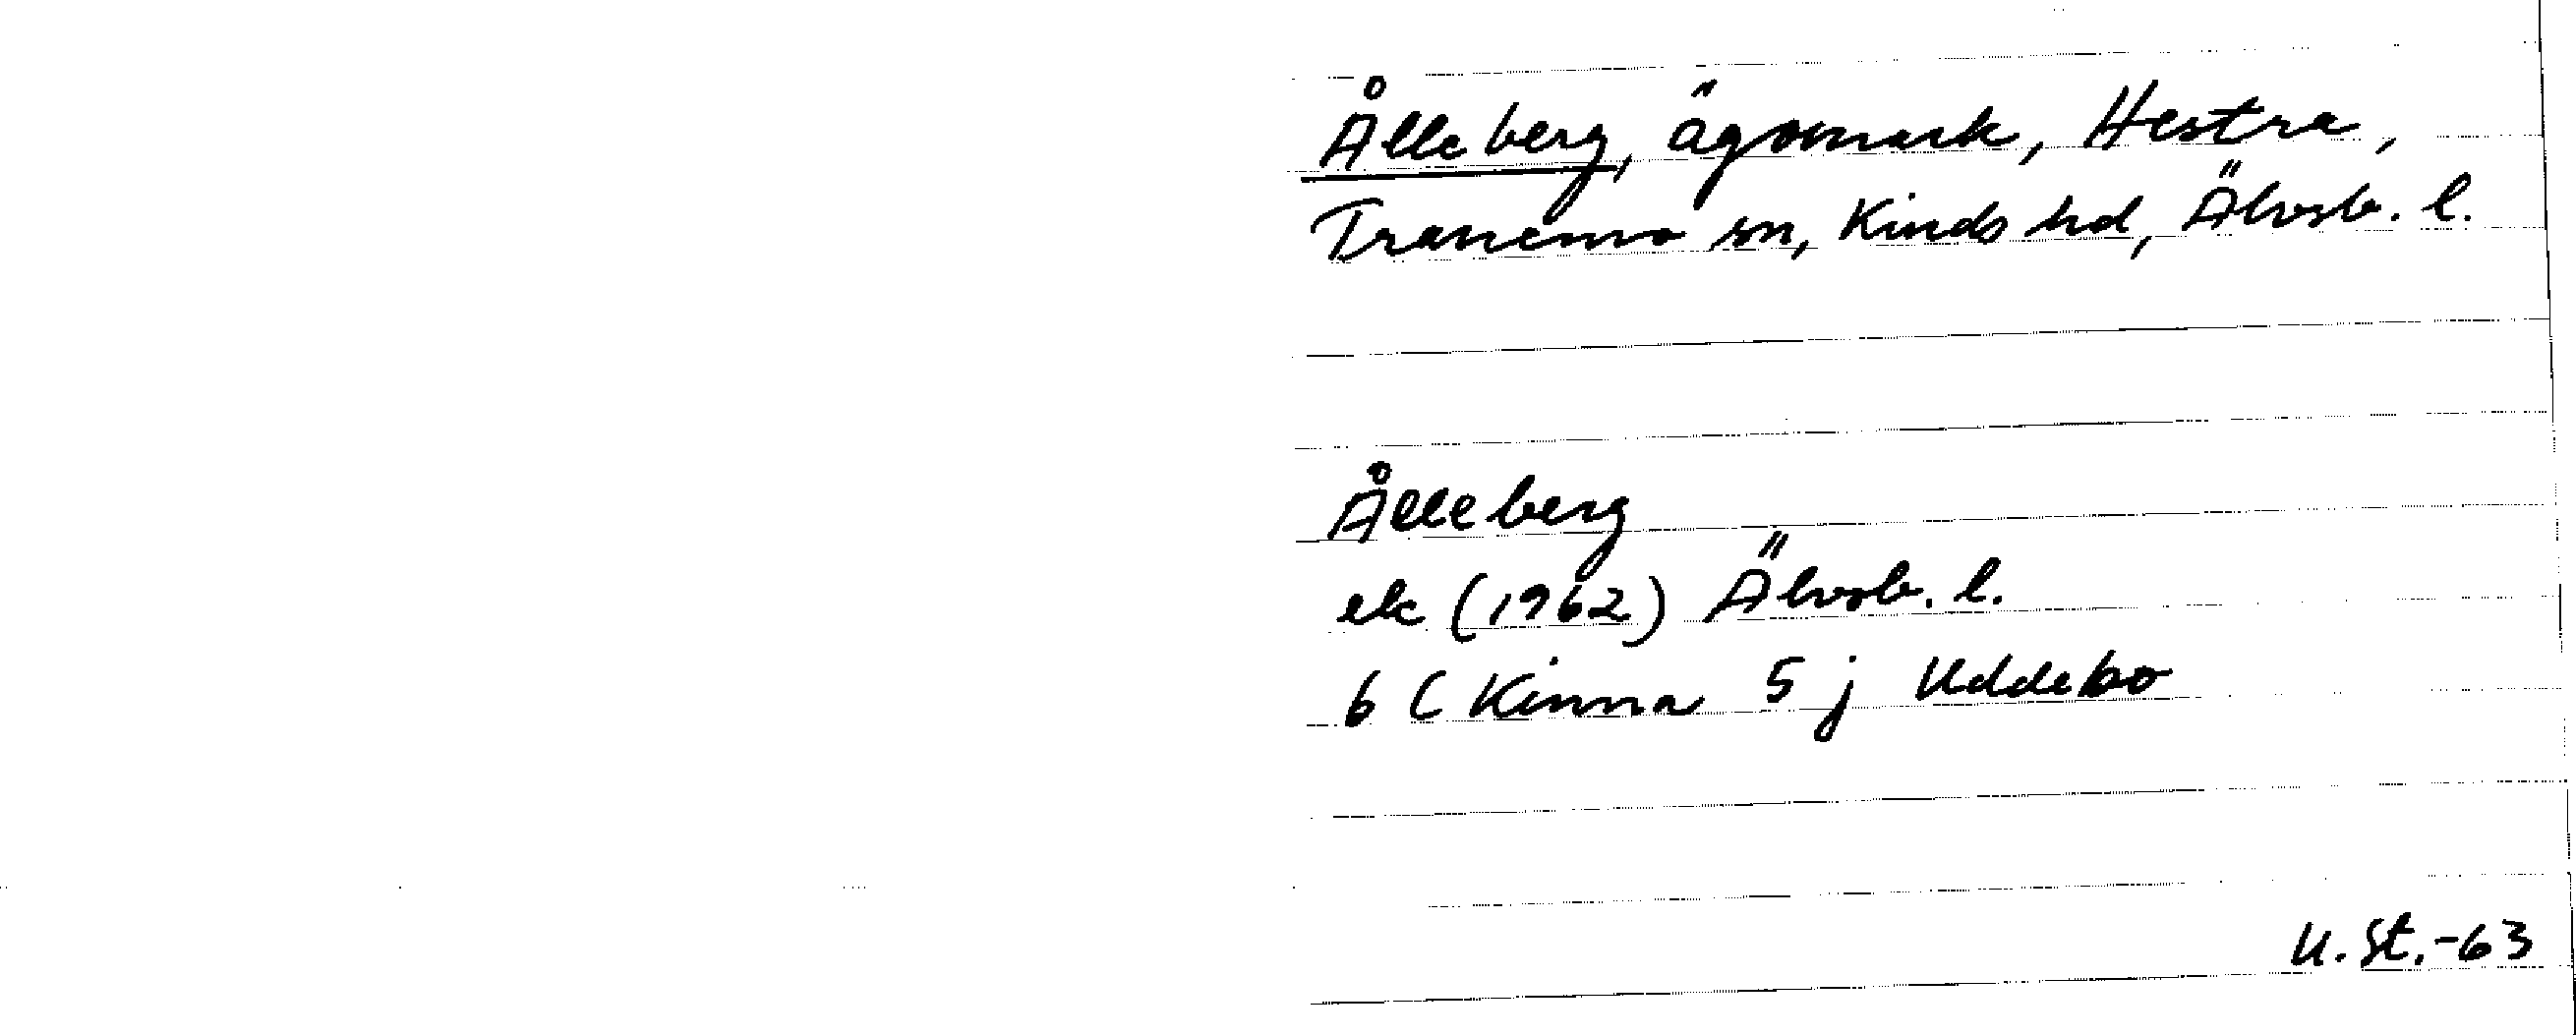 Ålleberg, ägomark, Hestra,
Tranemo sn, Kinds hd, Älvsb. l.
Ålleberg
ek (1962) Älvsb. l.
6 C Kinna 5 j Uddebo
U. St. -63